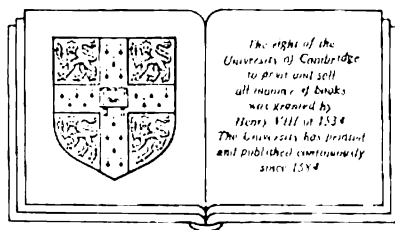 The right of the
University of Cambridge
to print and sell
all manner of books
was granted by
Henry VIII in 1534
The University has printed
and published continuously
since 1584